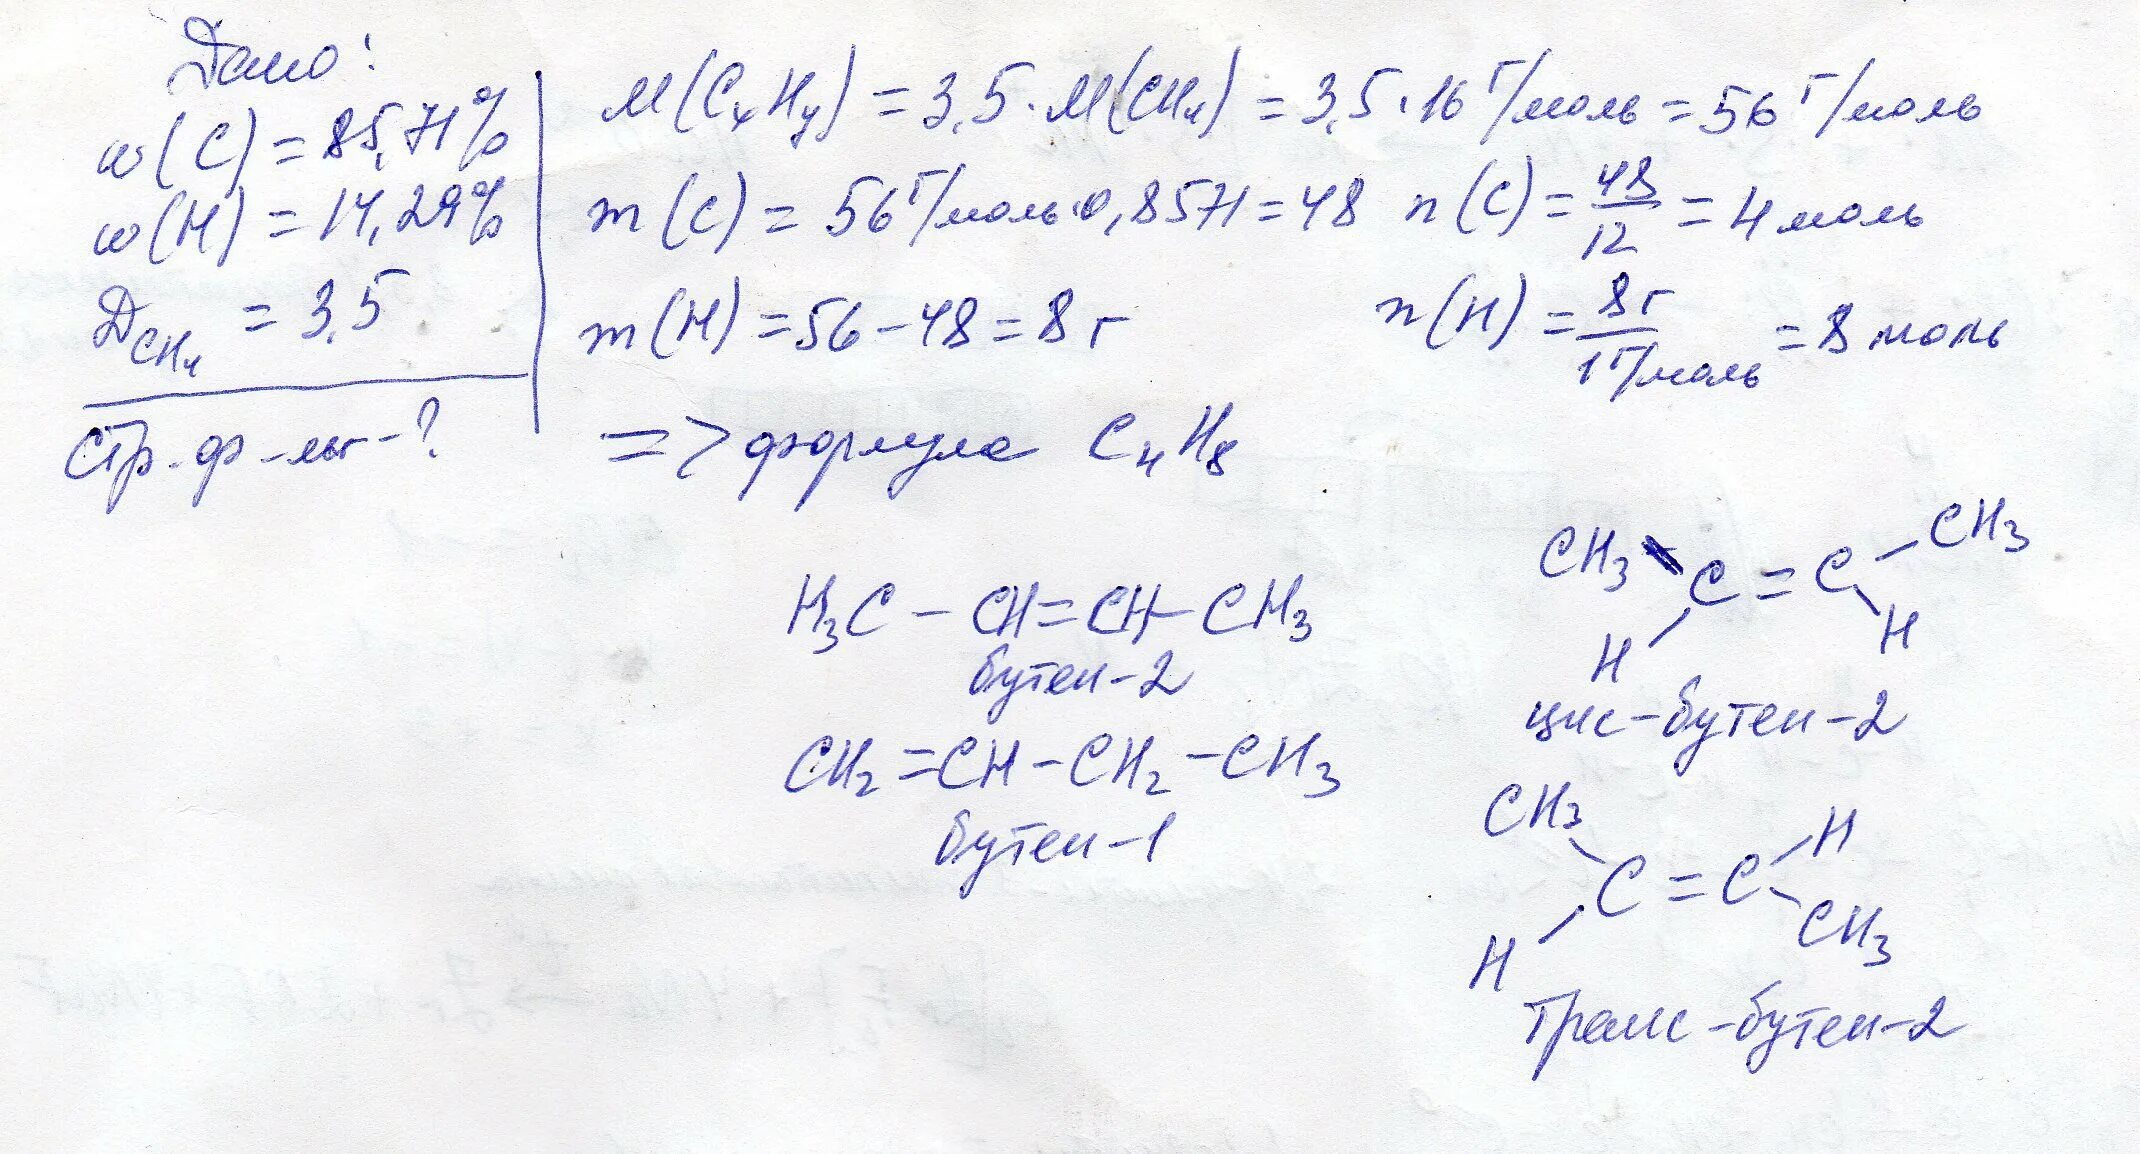 Дано:
w(C) = 85,71%
w(H) = 14,29%
Д_CH₄ = 3,5
стр. ф-лы - ?
M(CₓHᵧ) = 3,5 · M(CH₄) = 3,5 · 16 г/моль = 56 г/моль
m(C) = 56 г/моль · 0,8571 = 48 n(C) = 48/12 = 4 моль
m(H) = 56 - 48 = 8 г n(H) = 8г/1г/моль = 8 моль
=> формула C₄H₈
H₃C - CH = CH - CH₃
бутен-2
CH₂ = CH - CH₂ - CH₃
бутен-1
CH₃ CH₃
C = C
H H
цис-бутен-2
CH₃ H
C = C
H CH₃
транс-бутен-2